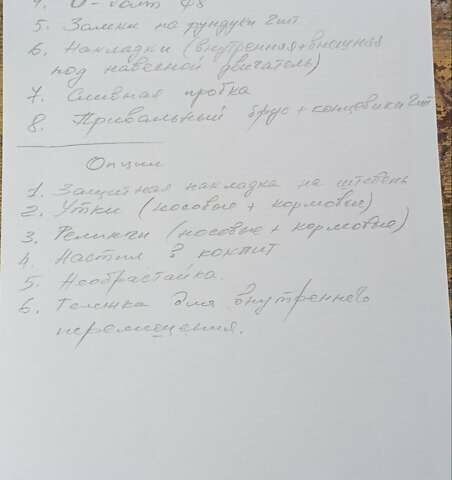 4. U-болт φ8
5. Замки на рундуки 2шт
6. Накладки (внутренняя+внешняя
под навесной двигатель)
7. Сливная пробка
8. Привальный брус + концевики 2шт
Опции
1. Защитная накладка на штевень
2. Утки (носовые + кормовые)
3. Релинги (носовые + кормовые)
4. Настил в кокпит
5. Необрастайка.
6. Тележка для внутреннего
перемещения.